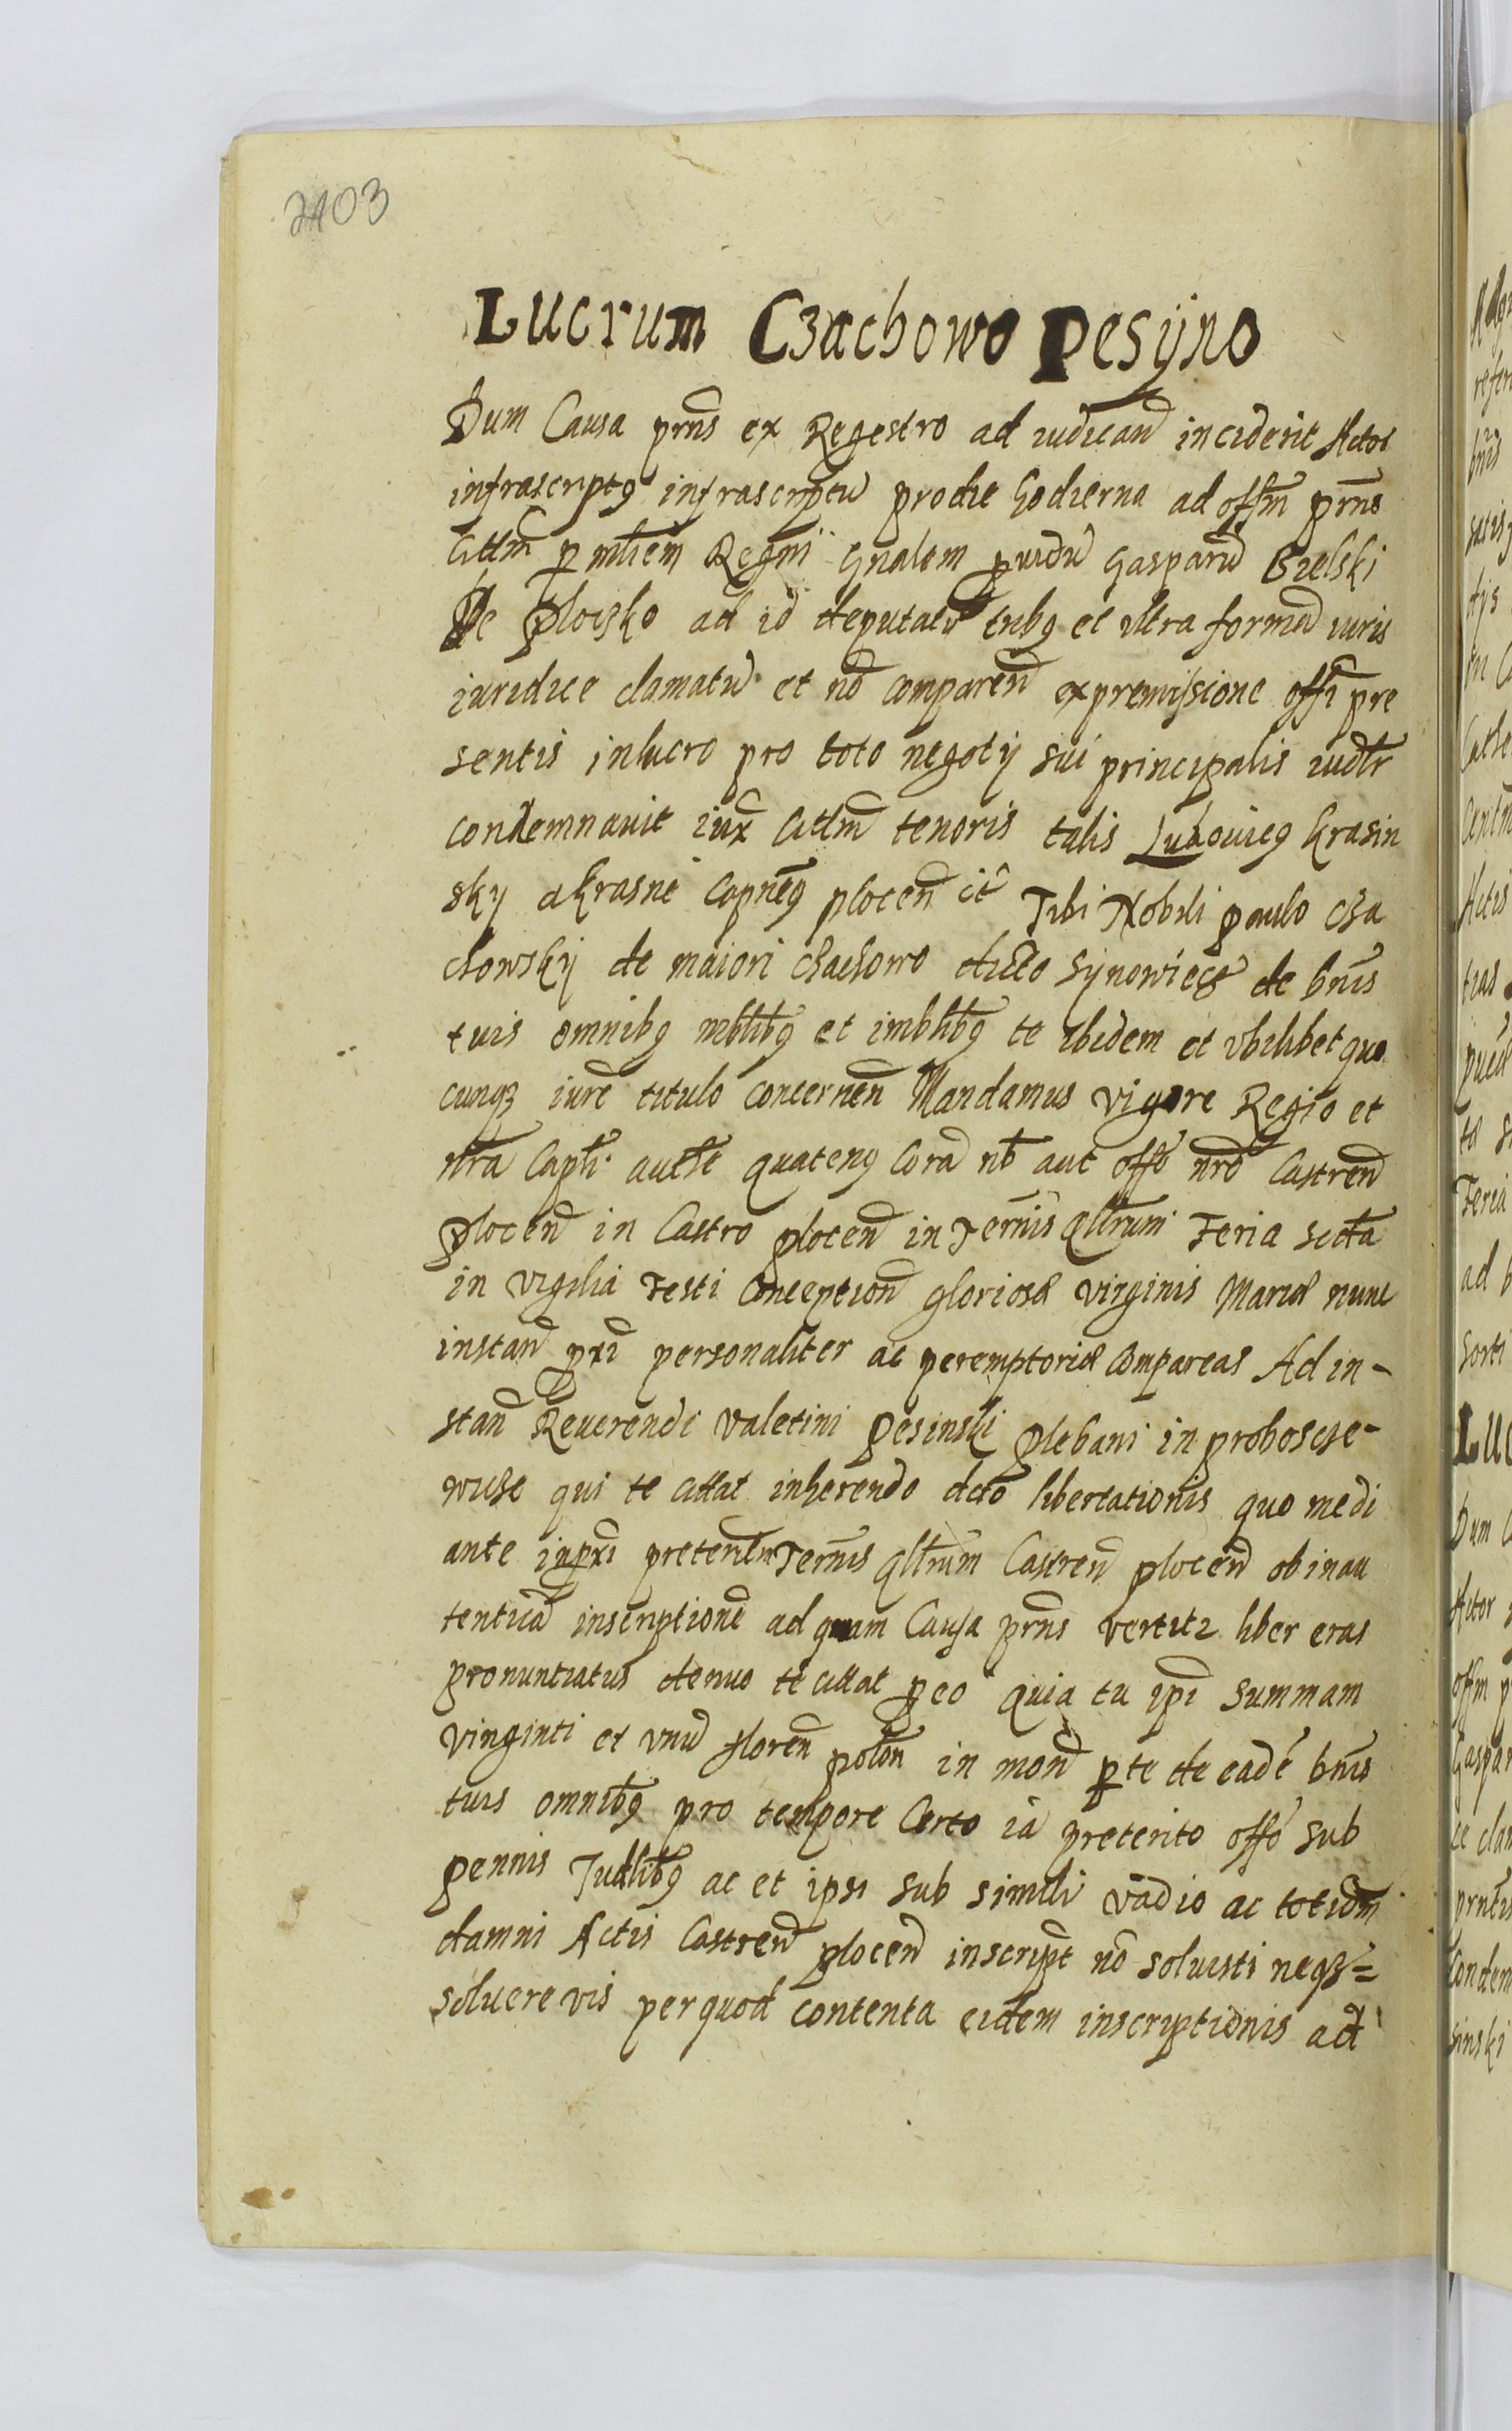 2403
Lucrum Czachowo Pesÿno
Dum Causa prns ex Regestro ad iudican inciderit Actor
infrascriptg infrascriptu prodie hodierna ad offm prns
Cittm p mlrem Regni Gnalem puidu Gasparu Bielski
De Plocsko ad id deputatu tribg et vltra formā iuris
iuridice clamatu et nō comparen ex premissione offi pre
sentis in lucro pro toto negotÿ sui principalis iudlr
condemnauit iux Cittm tenoris talis Ludouicg Krasin
sky a Krasne Capneg plocen ic Tibi Nobili paulo cha
chowskÿ de maiori chachowo dicto Synowiecz de bnis
tuis omnibg mblibg et imblibg te ibidem et vbilibet quo
cunqz iure titulo concernen Mandamus vigore Regio et
nrā Capli authe quateng Corā nb aut offō nrō Castren
Plocen in Castro plocen in Termis qllrum Feria secta
in vigilia Festi Conception gloriosæ virginis Mariæ nunc
instan pxi personaliter ac peremptoriæ compareas Ad in-
stan Reuerendi valetini Pesinski Plebani in proboscze-
wicze qui te cittat inherendo dcto libertationis quo medi
ante in pxi preteritm Termis qllrum Castren plocen ob inau
tenticā inscriptionē ad quam Causa prns vertitz liber eras
pronuntiatus denuo te cittat peo quia tu ipi summam
vinginti et vnu floren polon in mon pte de eadē bnis
tuis omnibg pro tempore Certo iā preterito offo sub
pennis Judlibg ac et ipsi sub simili vadio ac totidm
damni Actis Castren plocen inscript nō soluisti neqz=
soluere vis per quod contenta eidem inscriptionis ad